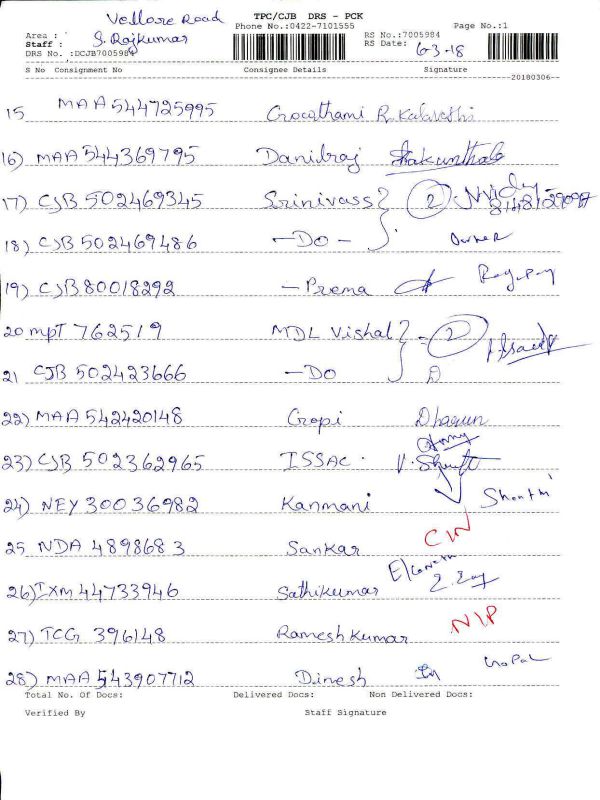 Vellore Road
TPC/CJB DRS - PCK
Area :
Phone No.:0422-7101555
RS No.:7005984
Page No.:1
Staff : S. Rajkumar
RS Date: 6-3-18
DRS No. :DCJB7005984
S No Consignment No Consignee Details Signature
20180306
15 MAA 544725995
16) MAA 544369795 Danilraj Shakunthala
17) CJB 502469345 Srinivass 2
18) CJB 502469486 -Do- Owner
19) CJB 80018292 - Prema
20 MPT 762519 MDL Vishal = 2
21 CJB 502423666 -Do
22) MAA 542420148 Gopi
23) CJB 502362965 ISSAC.
24) NEY 30036982 Kanmani Shanthi
25 NDA 4898683 Sankar
26) IXM 44733946 Sathikumar
27) TCG 396148 Ramesh Kumar N/P
28) MAA 543907712 Dinesh Gopal
Total No. Of Docs: Delivered Docs: Non Delivered Docs:
Verified By Staff Signature